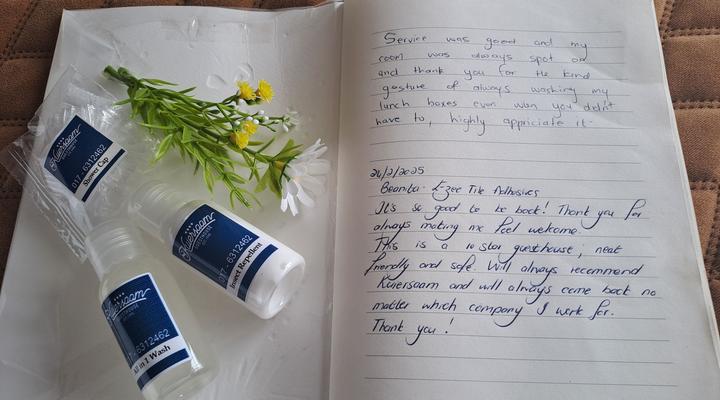 Kuiersaam
017- 6312462
Shower Cap
Kuiersaam
017 - 6312462
Insect Repellent
Kuiersaam
6312462
All in 1 Wash
Service was good and my
room was always spot on
and thank you for the kind
gasture of always washing my
lunch boxes even wen you didn't
have to, highly appriciate it.
24/2/2025
Beanita - E-zee Tile Adhesives
It's so good to be back! Thank you for
always making me feel welcome.
This is a 10 star guesthouse; neat
friendly and safe. Will always recommend
Kuiersaam and will always come back no
matter which company I work for.
Thank you!